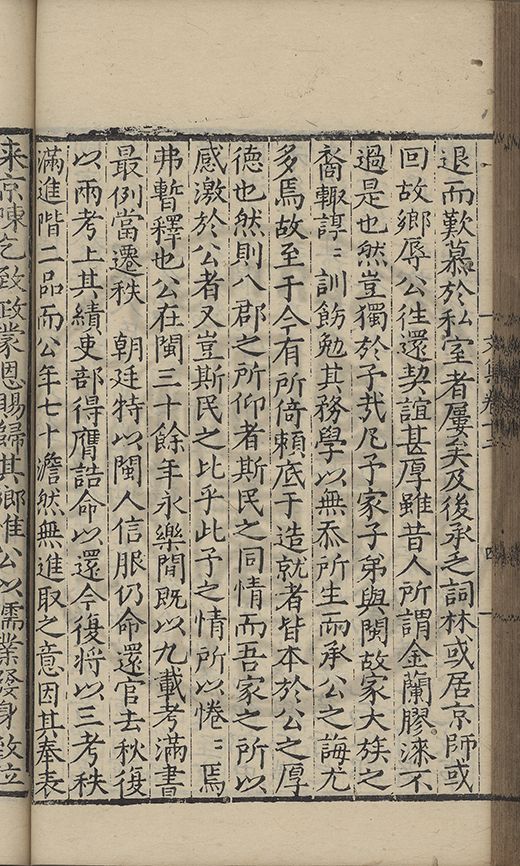 退而歎慕於私室者屢矣及後承乏詞林或居京師或
回故鄉辱公往還契誼甚厚雖昔人所謂金蘭膠漆不
過是也然豈獨於予哉凡予家子弟與閩故家大族之
裔輙諄〻訓飭勉其務學以無忝所生而承公之誨尤
多焉故至于今有所倚賴底于造就者皆本於公之厚
德也然則八郡之所仰者斯民之同情而吾家之所以
感激於公者又豈斯民之比乎此子之情所以惓〻焉
弗暫釋也公在閩三十餘年永樂間既以九載考滿書
最例當遷秩　朝廷特以閩人信服仍命還官去秋復
以兩考上其績吏部得膺誥命以還今復將以三考秩
滿進階二品而公年七十澹然無進取之意因其奉表
来京陳乞致政蒙恩賜歸其鄉惟公以儒業發身致位
文集卷十二
四